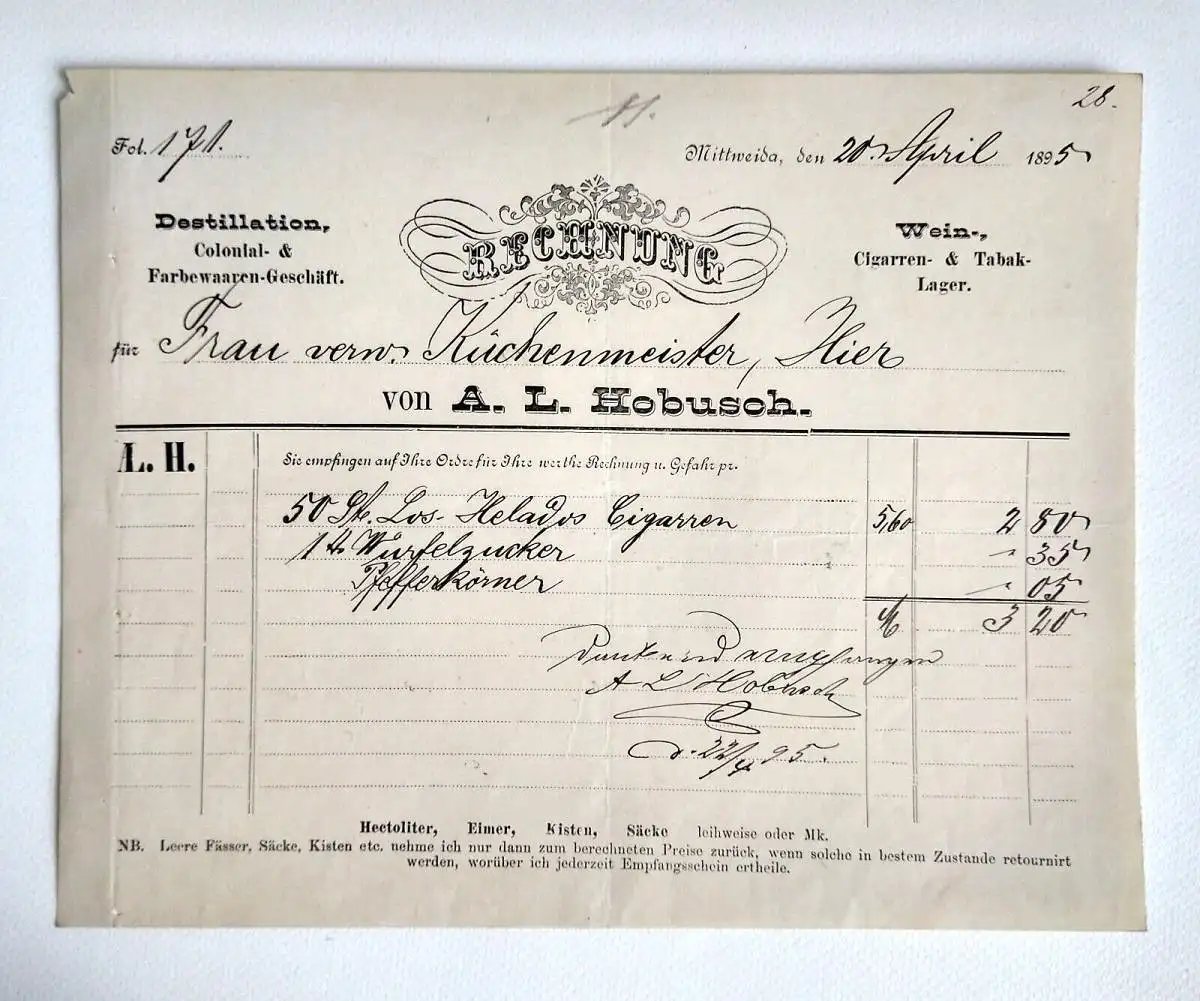 28.
Fol. 171.
Mittweida, den 20. April 1895
Destillation,
Colonial- &
Farbewaaren-Geschäft.
RECHNUNG
Wein-,
Cigarren- & Tabak-
Lager.
für Frau verw. Küchenmeister, Hier
von A. L. Hobusch.
A. L. H.
Sie empfingen auf Ihre Ordre für Ihre werthe Rechnung u. Gefahr pr.
50 St. Los Helados Cigarren 5,60 2 80
1 ℔ Würfelzucker " 35
Pfefferkörner " 05
ℳ 3 20
Dankend empfangen
A L Hobusch
d. 22/4 95.
Hectoliter, Eimer, Kisten, Säcke leihweise oder Mk.
NB. Leere Fässer, Säcke, Kisten etc. nehme ich nur dann zum berechneten Preise zurück, wenn solche in bestem Zustande retournirt
werden, worüber ich jederzeit Empfangsschein ertheile.